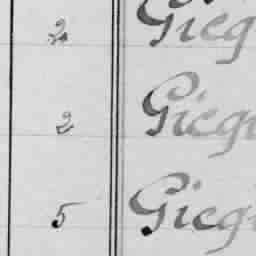 2 Gieg
2 Gieg
5 Gieg